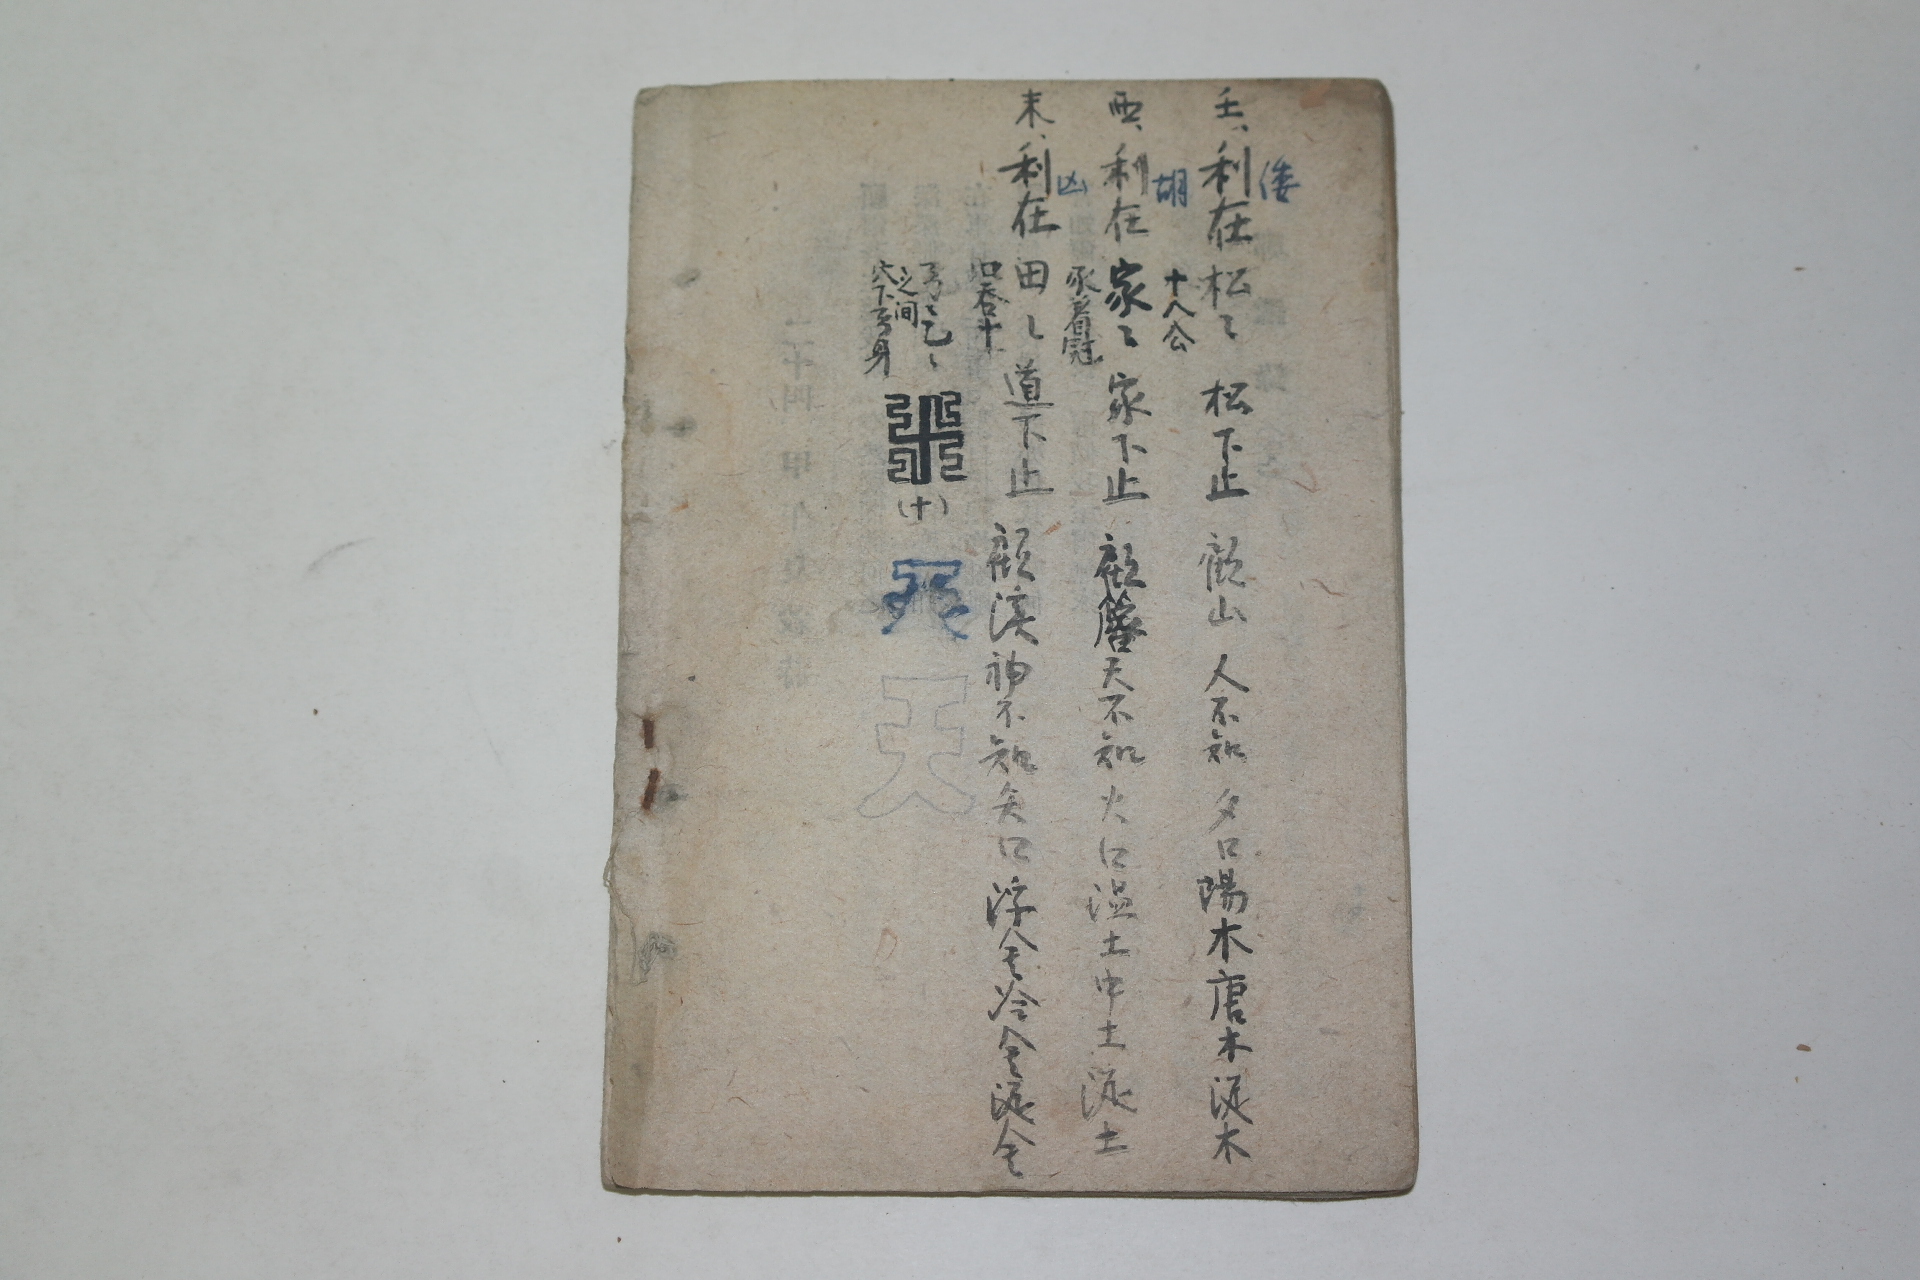 倭
壬、利在松〻 松下止 顧山 人不知 夕口陽木唐木涎木
十八公
胡
酉、利在家〻 家下止 顧簷天不知 火口溫土中土涎土
豕着冠
凶
末、利在田〻 道下止 顧溪神不知矣口浮金冷金涎金
如吞十
弓〻乙〻
之间
穴下弓身
(十)